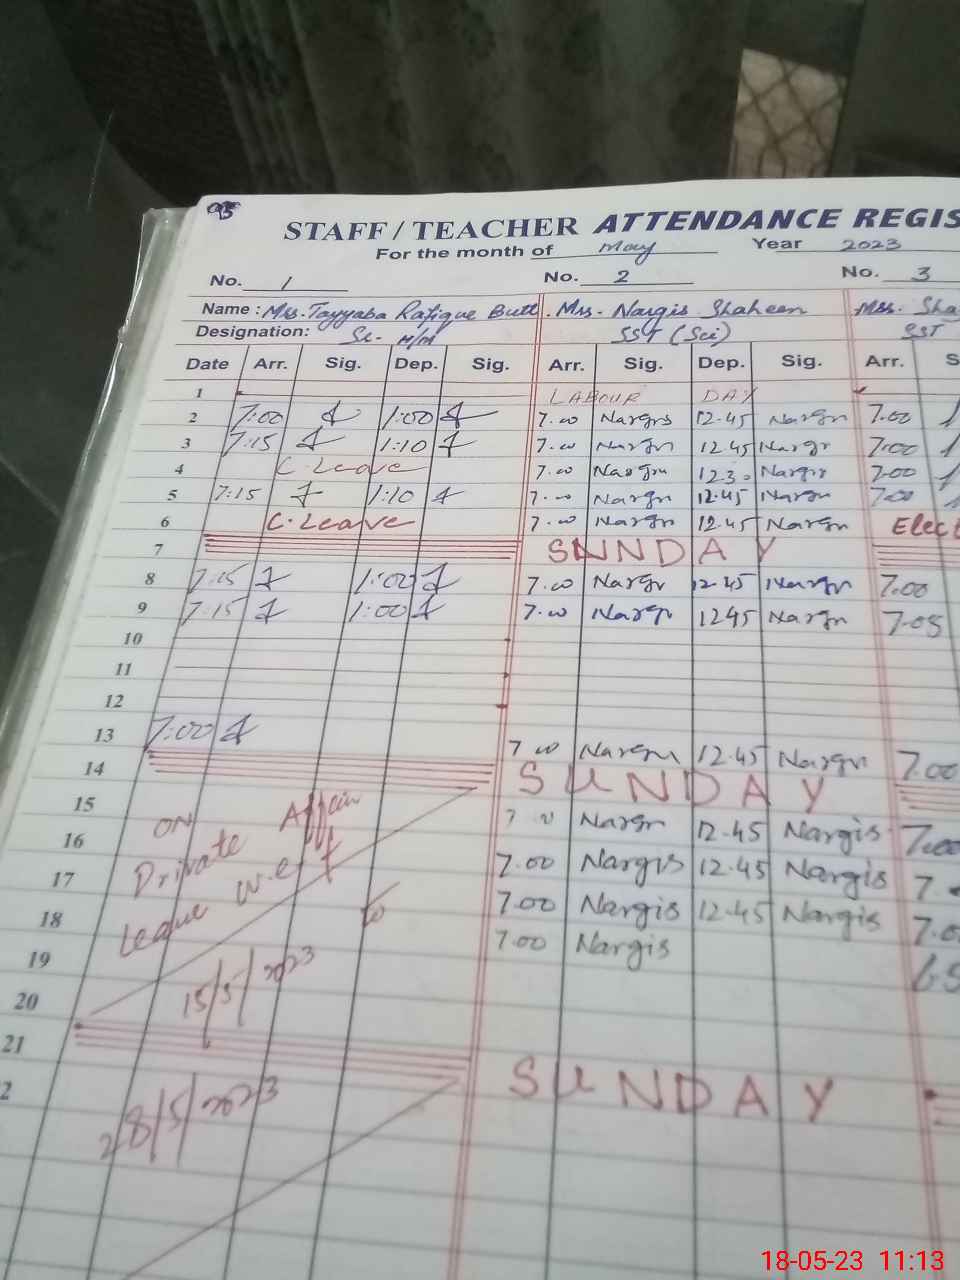 095
STAFF / TEACHER ATTENDANCE REGIS
For the month of May Year 2023
No. 1 No. 2 No. 3
Name : Mrs. Tayyaba Rafique Butt. Mrs. Nargis Shaheen Mrs. Sha
Designation: Sr. H/M SST (Sci) SST
Date Arr. Sig. Dep. Sig. Arr. Sig. Dep. Sig. Arr. S
1 LABOUR DAY
2 7:00 1:00 7.00 Nargis 12.45 Nargis 7.00
3 7:15 1:10 7.00 Nargis 12.45 Nargis 7:00
4 C. Leave 7.00 Nargis 12.30 Nargis 7.00
5 7:15 1:10 7.00 Nargis 12.45 Nargis 7.00
6 C. Leave 7.00 Nargis 12.45 Nargis Elect
7 SUNDAY
8 7:15 1:00 7.00 Nargis 12.45 Nargis 7.00
9 7:15 1:00 7.00 Nargis 12.45 Nargis 7.05
10
11
12
13 7:00 7.00 Nargis 12.45 Nargis 7.00
14 SUNDAY
15 7.00 Nargis 12.45 Nargis 7.00
16 ON Private Affair 7.00 Nargis 12.45 Nargis 7.
17 Leave w.e.f 7.00 Nargis 12.45 Nargis 7.0
18 to 7.00 Nargis 6.5
19 15/5/2023
20
21 SUNDAY
2 28/5/2023
18-05-23 11:13